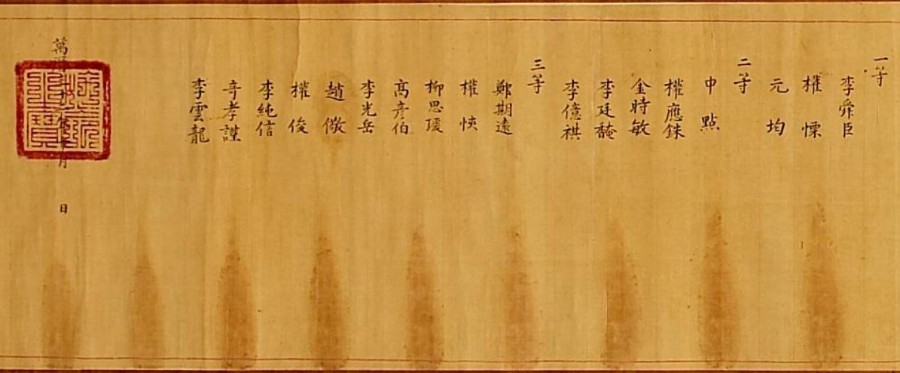 一等
李舜臣
權慄
元均
二等
申點
權應銖
金時敏
李廷馣
李億祺
三等
鄭期遠
權悏
柳思瑗
高彦伯
李光岳
趙儆
權俊
李純信
奇孝謹
李雲龍
萬 月 日